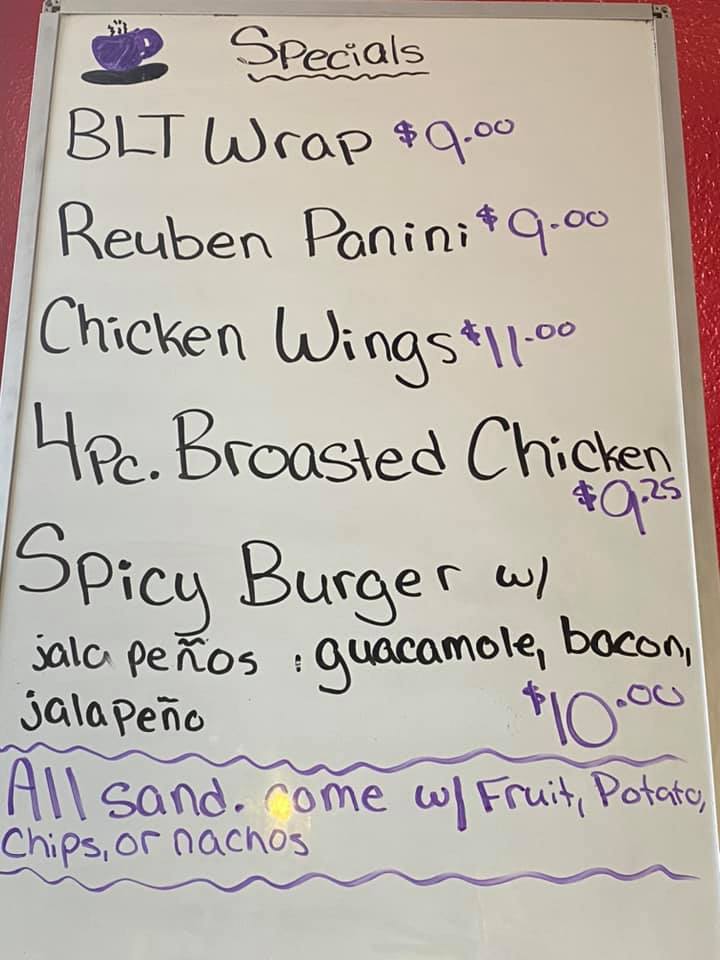 Specials
BLT Wrap $9.00
Reuben Panini $9.00
Chicken Wings $11.00
4pc. Broasted Chicken
$9.25
Spicy Burger w/
jalapeños, guacamole, bacon,
jalapeño $10.00
All sand. come w/ Fruit, Potato,
Chips, or nachos